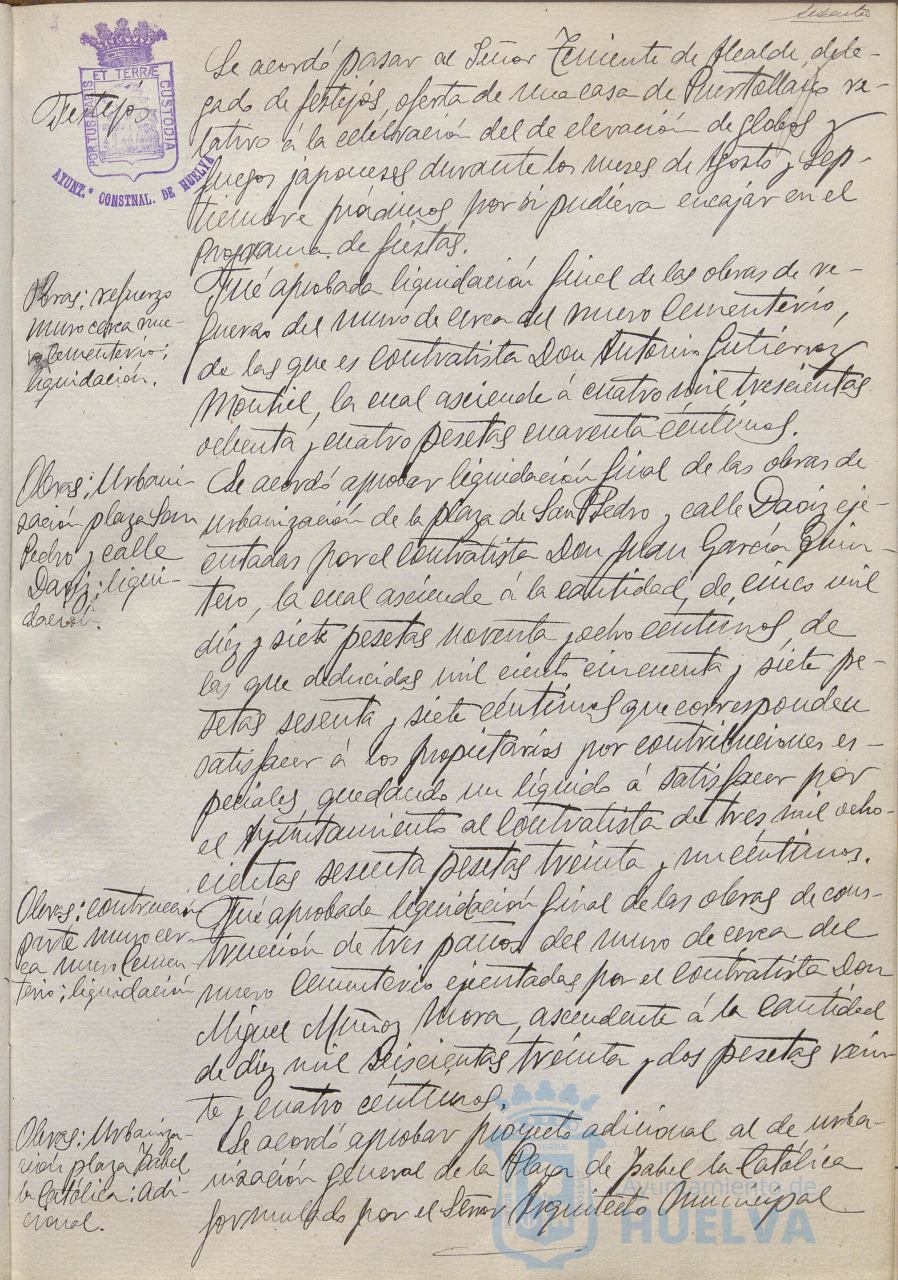 sesenta
PORTUS MARIS ET TERRÆ CUSTODIA
AYUNT.º CONSTNAL. DE HUELVA
Festejos
Se acordó pasar al Señor Teniente de Alcalde, dele-
gado de festejos, oferta de una casa de Puertollano re-
lativo á la celebración del de elevación de globos y
fuegos japoneses durante los meses de Agosto y Sep-
tiembre próximos, por si pudiera encajar en el
Programa de fiestas.
Obras; refuerzo
muro cerca nue-
vo Cementerio;
liquidación.
Fué aprobada liquidación final de las obras de re-
fuerzo del muro de cerca del nuevo Cementerio,
de las que es contratista Don Antonio Gutiérrez
Montiel, la cual asciende á cuatro mil trescientas
ochenta y cuatro pesetas cuarenta céntimos.
Obras; Urbani-
zación plaza San
Pedro y calle
Daoiz; liqui-
dación.
Se acordó aprobar liquidación final de las obras de
urbanización de la plaza de San Pedro y calle Daoiz eje-
cutadas por el contratista Don Juan García Quin-
tero, la cual asciende á la cantidad de cinco mil
diez y siete pesetas noventa y ocho céntimos, de
las que deducidas mil ciento cincuenta y siete pe-
setas sesenta y siete céntimos que corresponden
satisfacer á los propietarios por contribuciones es-
peciales, quedando un líquido á satisfacer por
el Ayuntamiento al Contratista de tres mil ocho-
cientas sesenta pesetas treinta y un céntimos.
Obras; contrucción
parte muro cer-
ca nuevo Cemen-
terio; liquidación
Fué aprobada liquidación final de las obras de cons-
trucción de tres paños del muro de cerca del
nuevo Cementerio ejecutadas por el contratista Don
Miguel Muñoz Mora, ascendente á la cantidad
de diez mil seiscientas treinta y dos pesetas vein-
te y cuatro céntimos.
Obras; Urbaniza-
ción plaza Isabel
la Católica; Adi-
cional.
Se acordó aprobar proyecto adicional al de urba-
nización general de la Plaza de Isabel la Católica
formulado por el Señor Arquitecto Municipal
Ayuntamiento de
HUELVA